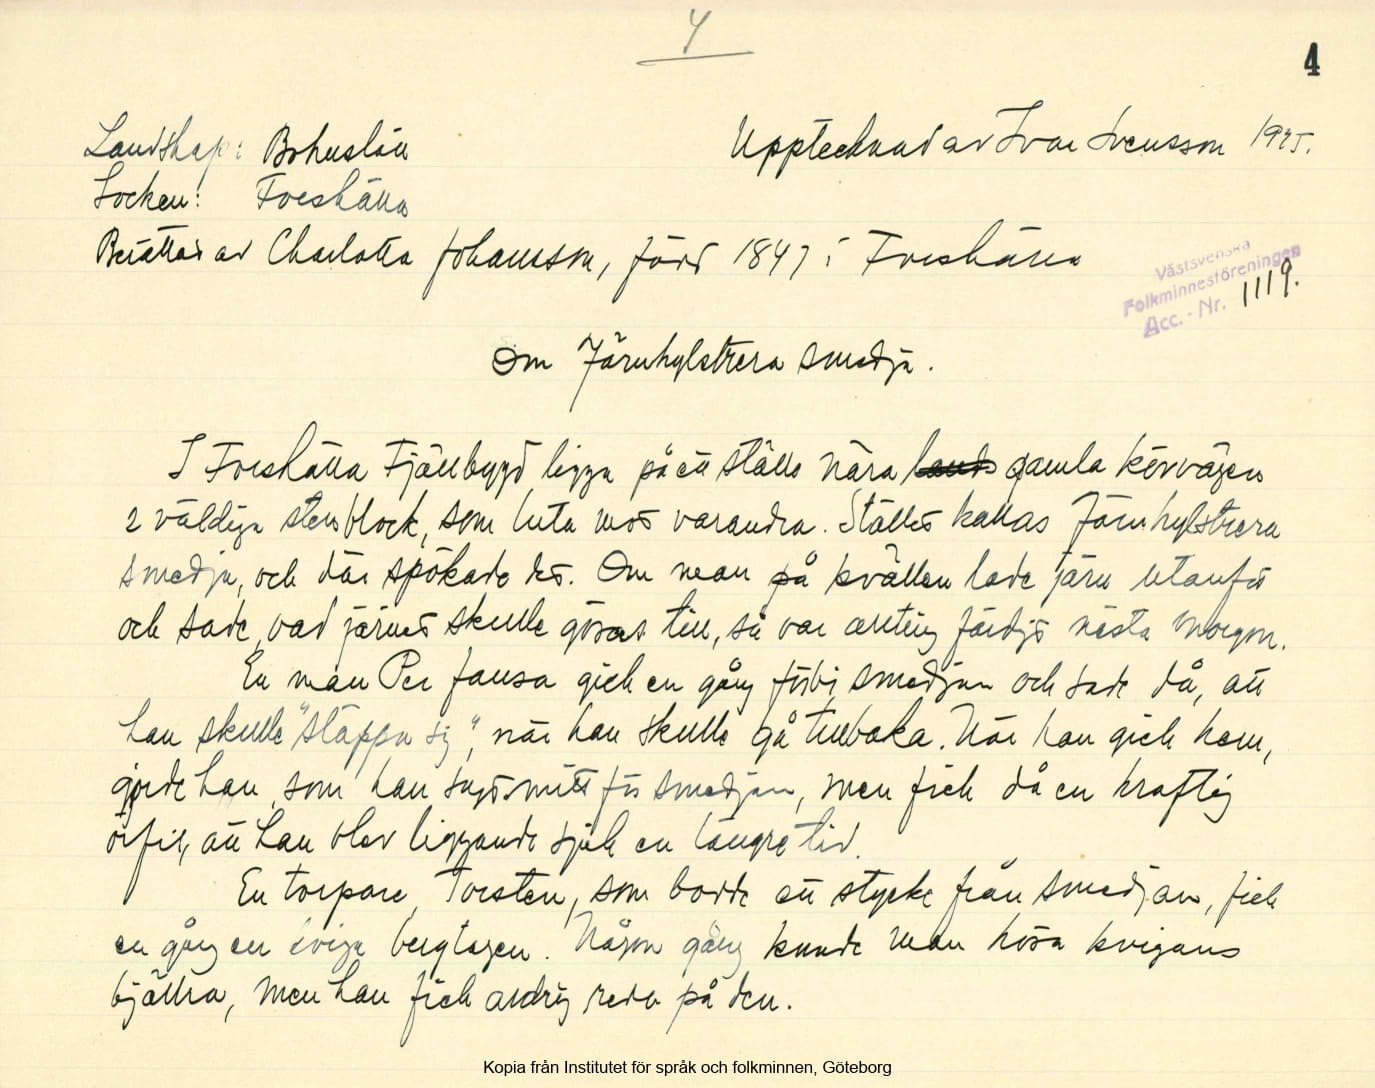 4
4
Landskap: Bohuslän
Upptecknad av Ivar Svensson 1925.
Socken: Foreshälla
Berättad av Charlotta Johansson, född 1847 i Foreshälla
Västsvenska
Folkminnesföreningen
Acc. - Nr. 1119.
Om Järnhylstrera smedja.
I Foreshälla Fjällbygd ligga på ett ställe nära gamla körvägen
2 väldiga stenblock, som luta mot varandra. Stället kallas Järnhylstrera
smedja, och där spökade det. Om man på kvällen lade järn utanför
och sade, vad järnet skulle göras till, så var allting färdigt nästa morgon.
En man Per Jansa gick en gång förbi smedjan och sade då, att
han skulle "släppa sig", när han skulle gå tillbaka. När han gick hem,
gjorde han, som han sagt mitt för smedjan, men fick då en kraftig
örfil, att han blev liggande sjuk en längre tid.
En torpare, Torsten, som bodde ett stycke från smedjan, fick
en gång en kviga bergtagen. Någon gång kunde man höra kvigans
bjällra, men han fick aldrig reda på den.
Kopia från Institutet för språk och folkminnen, Göteborg